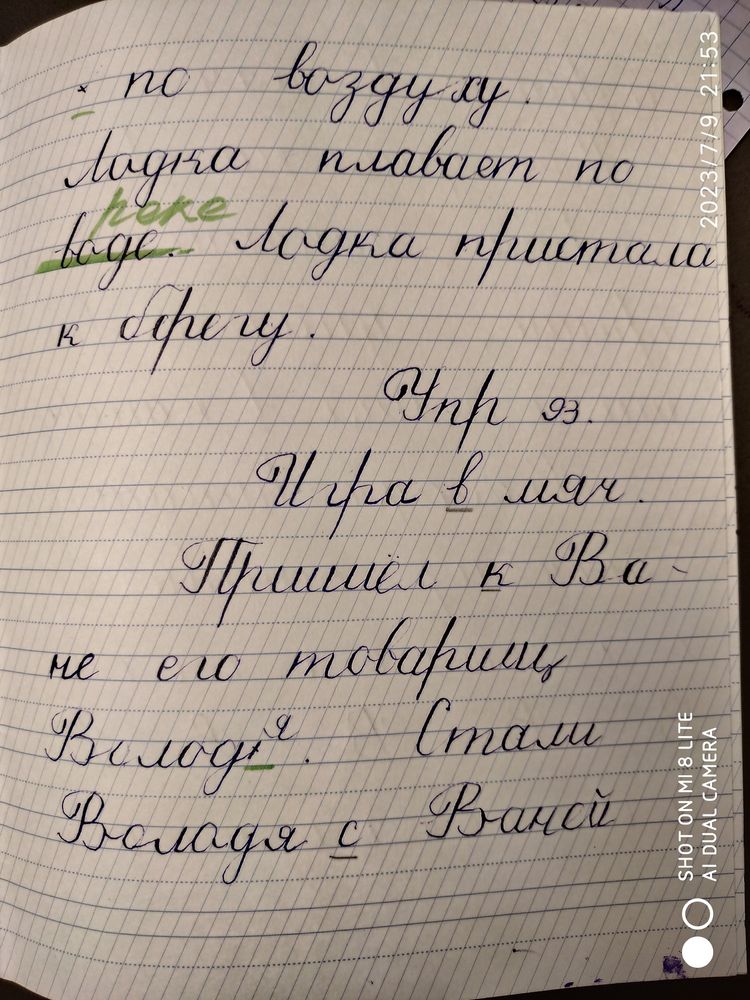 по воздуху.
Лодка плавает по
реке
воде. Лодка пристала
к берегу.
Упр 93.
Игра в мяч.
Пришёл к Ва-
не его товарищ
Володя. Стали
Володя с Ваней
2023/7/9 21:53
SHOT ON MI 8 LITE
AI DUAL CAMERA